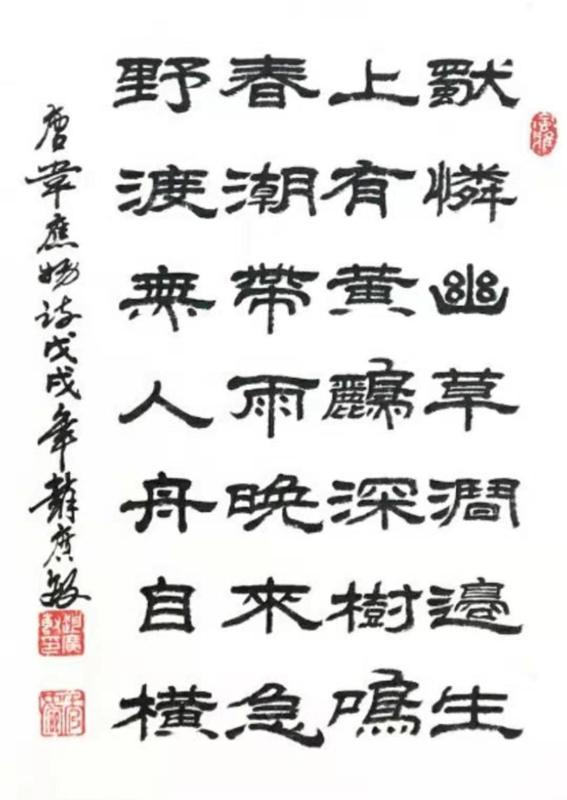 獨憐幽草澗邊生
上有黃鸝深樹鳴
春潮帶雨晚來急
野渡無人舟自橫
唐韋應物詩戊戌年廣敏